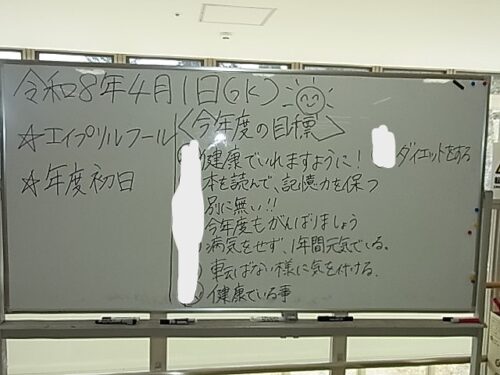 令和8年4月1日(水)
☆エイプリルフール
☆年度初日
<今年度の目標>
健康でいれますように!
本を読んで、記憶力を保つ
別に無い!!
今年度もがんばりましょう
病気をせず、1年間元気でいる。
転ばない様に気を付ける。
健康でいる事
ダイエットをする